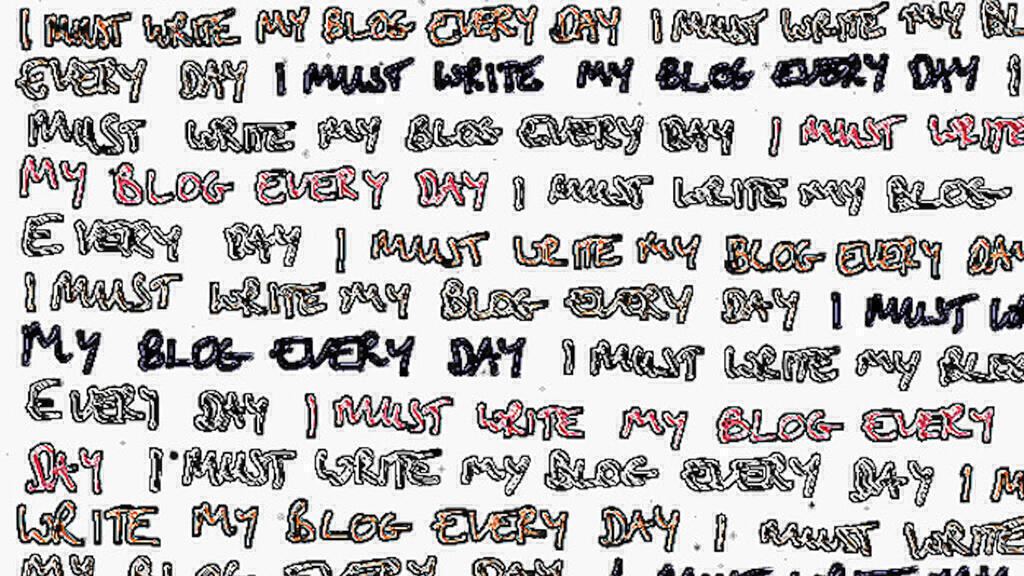 I MUST WRITE MY BLOG EVERY DAY I MUST WRITE MY BL
EVERY DAY I MUST WRITE MY BLOG EVERY DAY I
MUST WRITE MY BLOG EVERY DAY I MUST WRITE
MY BLOG EVERY DAY I MUST WRITE MY BLOG
EVERY DAY I MUST WRITE MY BLOG EVERY DAY
I MUST WRITE MY BLOG EVERY DAY I MUST W
MY BLOG EVERY DAY I MUST WRITE MY BLOG
EVERY DAY I MUST WRITE MY BLOG EVERY
DAY I MUST WRITE MY BLOG EVERY DAY I M
WRITE MY BLOG EVERY DAY I MUST WRITE
MY BLOG EVERY DAY I MUST WRITE MY